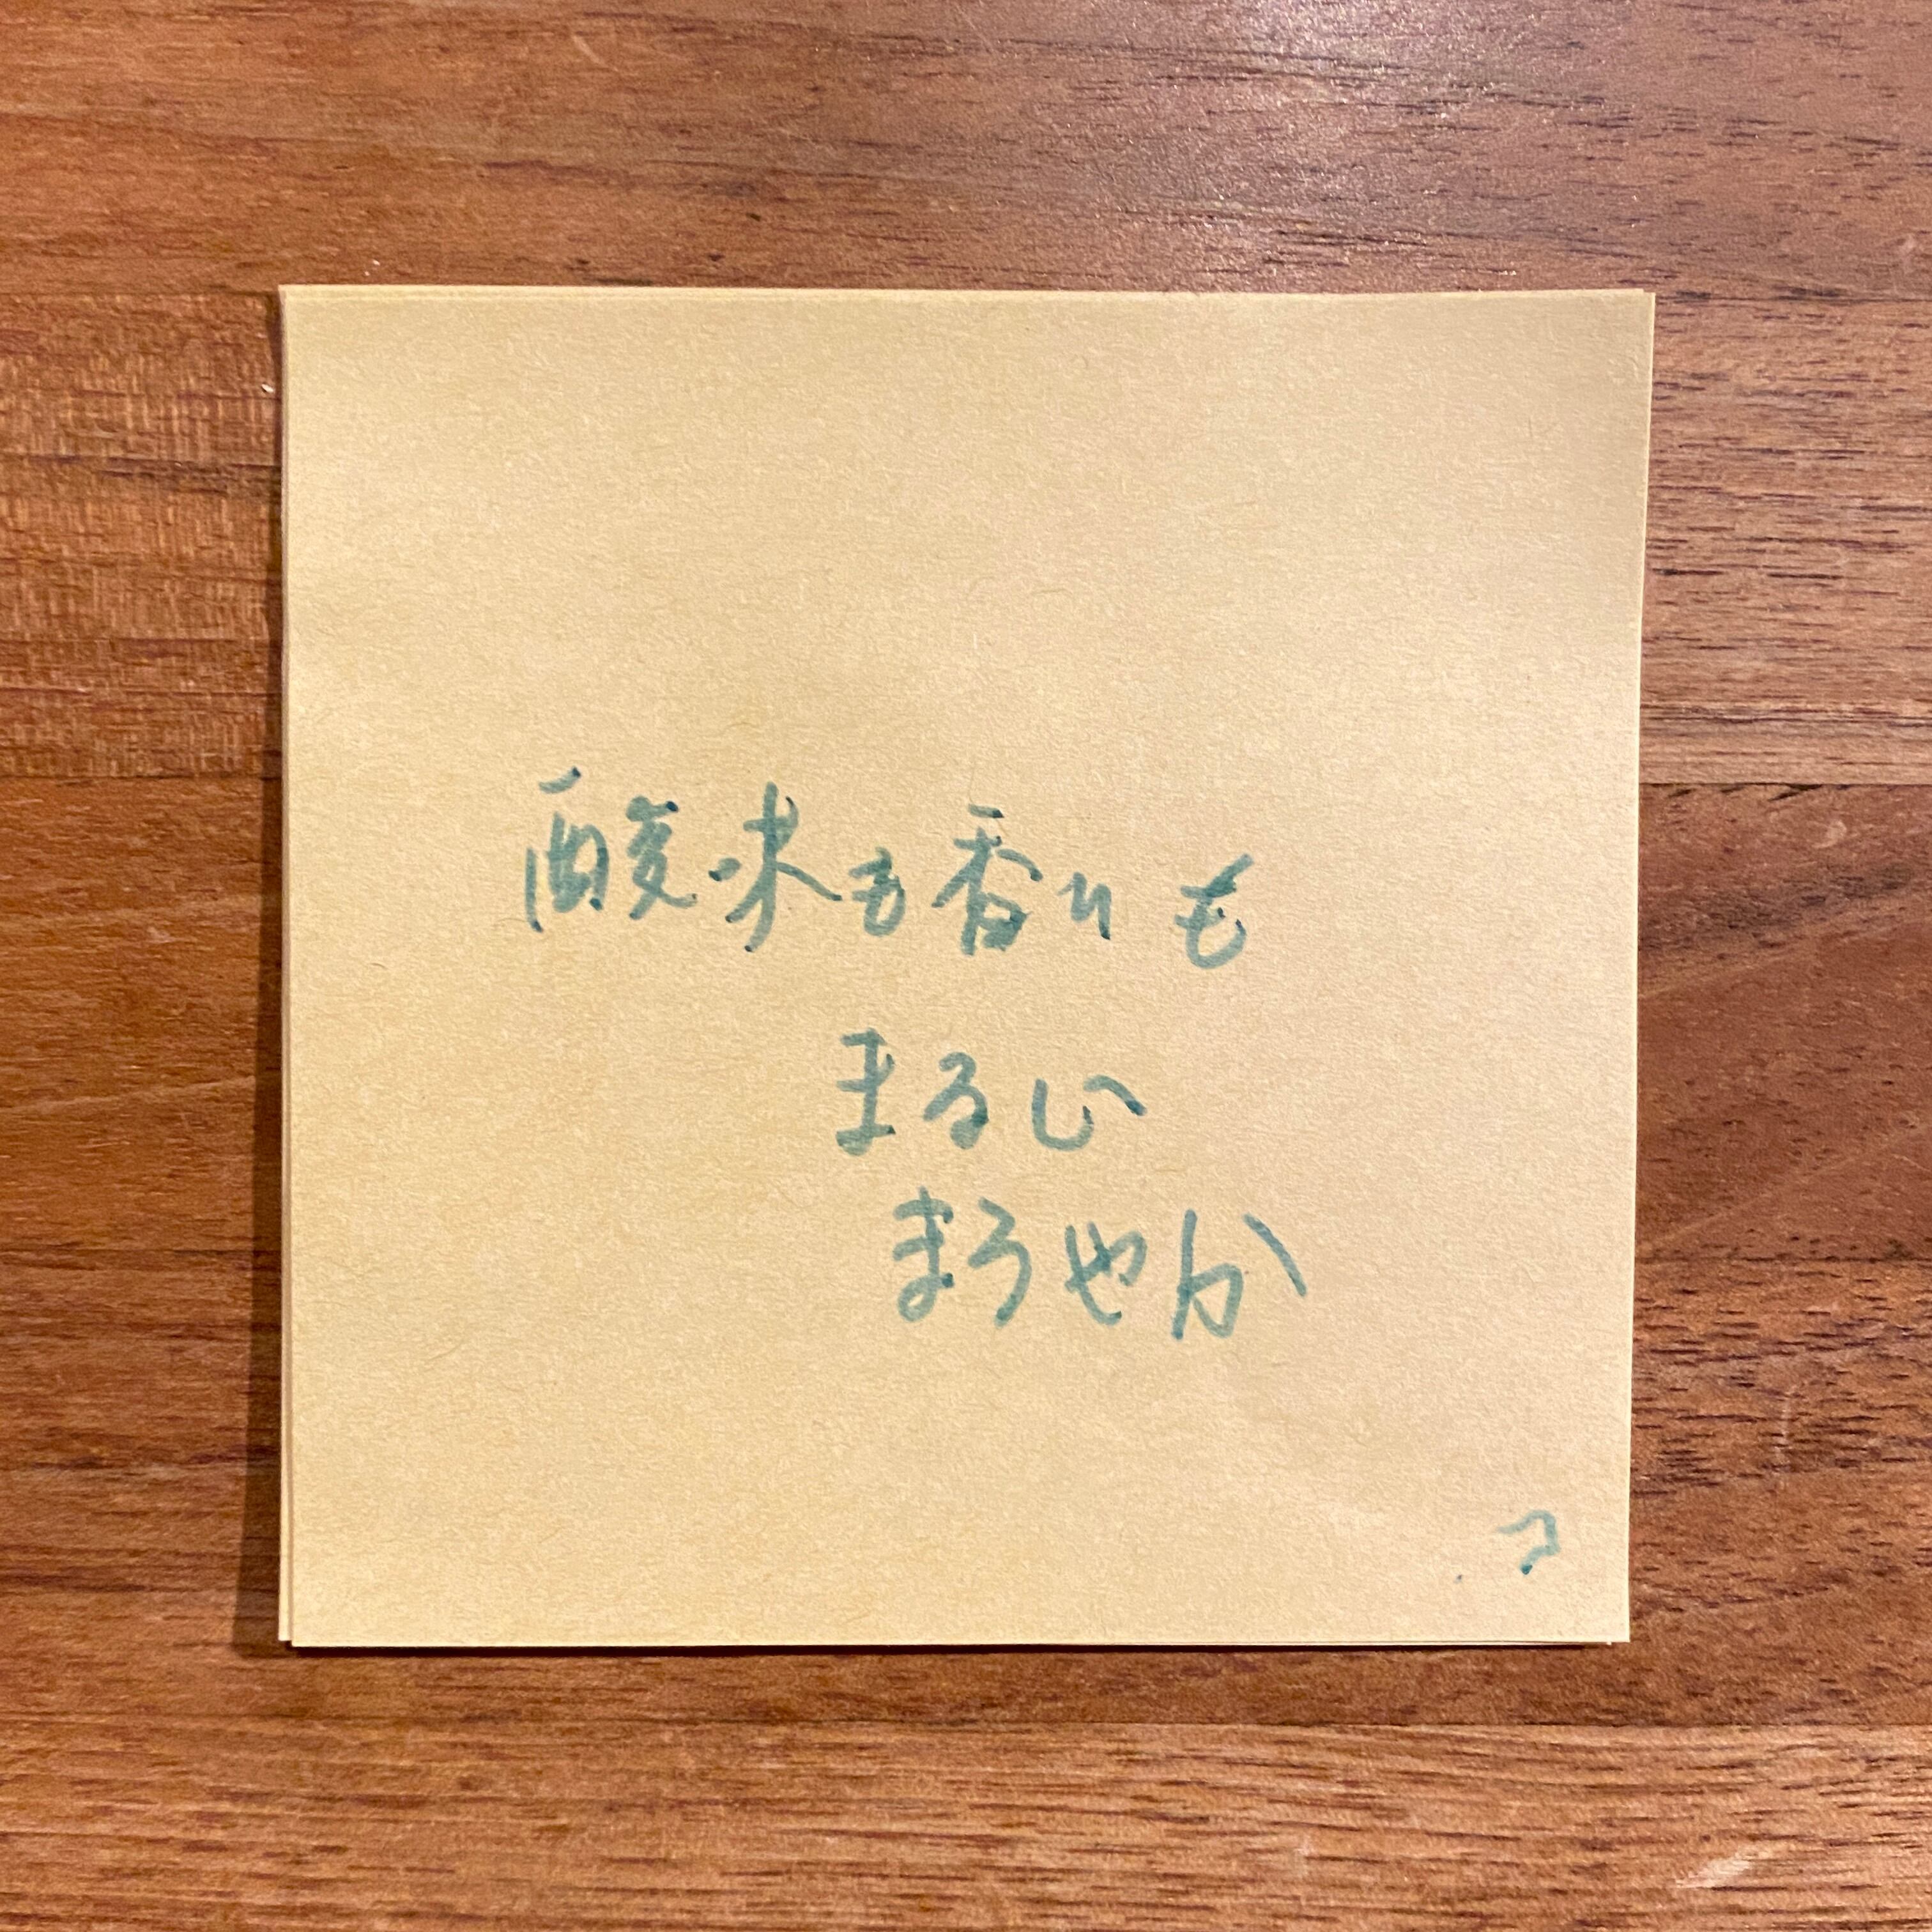 酸味も香りも
まるい
まろやか